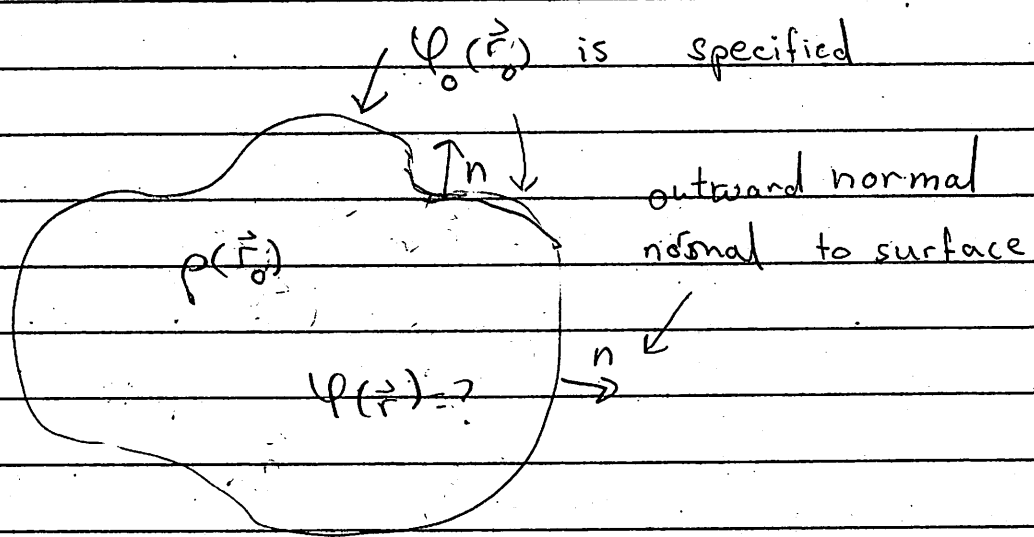 φ₀(r⃗₀) is specified
n
outward normal
ρ(r⃗₀)
normal to surface
n
φ(r⃗) = ?